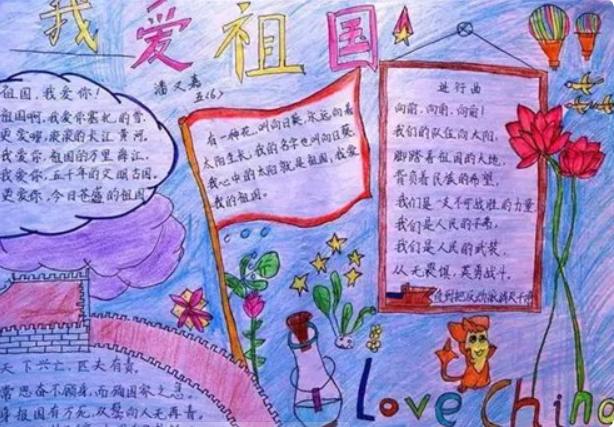 我爱祖国
潘文嘉
五(6)
祖国,我爱你!
祖国啊,我爱你塞北的雪.
更爱喔,滚滚的长江黄河。
我爱你,祖国的万里
我爱你,五千年的文明古国。
更爱你,今日苍盛的祖国
有一种花,叫向日葵,永远向着
太阳生长,我的名字也叫向日葵
我心中的太阳就是祖国,我爱
我的祖国。
进行曲
向前,向前,向前!
我们的队伍向太阳,
脚踏着祖国的大地,
背负着民族的希望,
我们是一支不可战胜的力量
我们是人民的子弟,
我们是人民的武装,
从无畏惧,英勇战斗。
天下兴亡,匹夫有责,
常思奋不顾身,而殉国家之急。
身报国有万死,双鬓向人无再青。
Love China